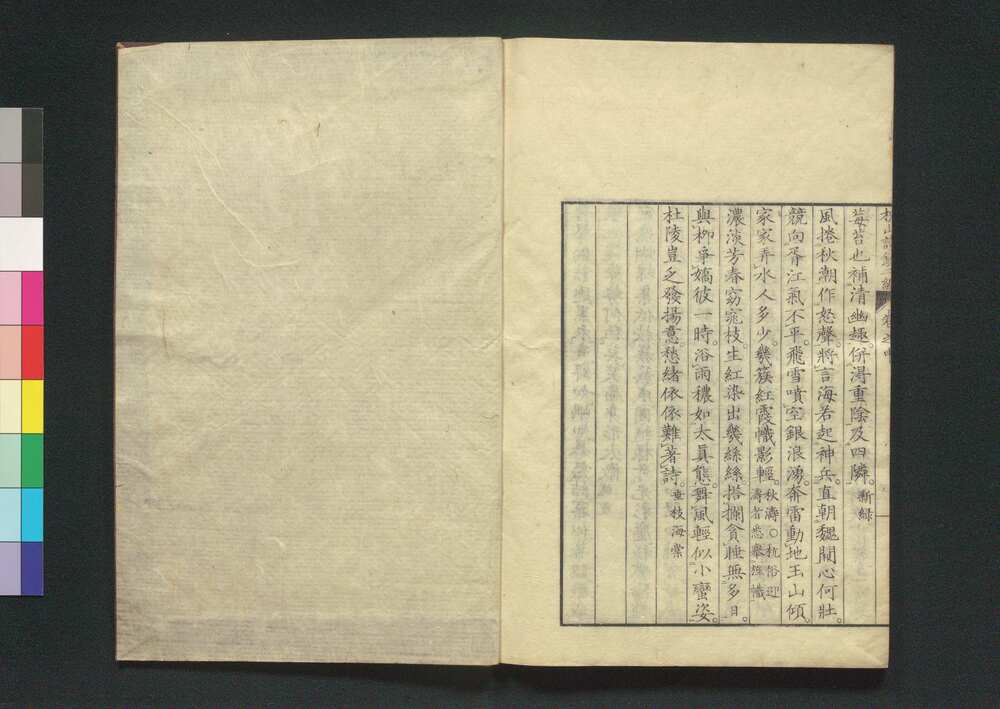 莓苔也補清幽趣。併得重陰及四隣。新緑
風捲秋潮作怒聲。將言海若起神兵。直朝魏闕心何壯。
競向胥江氣不平。飛雪噴空銀浪湧。奔雷動地玉山傾。
家家弄水人多少。幾簇紅霞幟影輕。秋濤○杭俗迎濤者悉擧綵幟
濃淡芳春窈窕枝。生紅染出幾絲絲。搭攔貪睡無多日。
與柳爭嬌彼一時。浴雨穠如太眞態。舞風輕似小蠻姿。
杜陵豈乏發揚意。愁緒依依難著詩。垂枝海棠